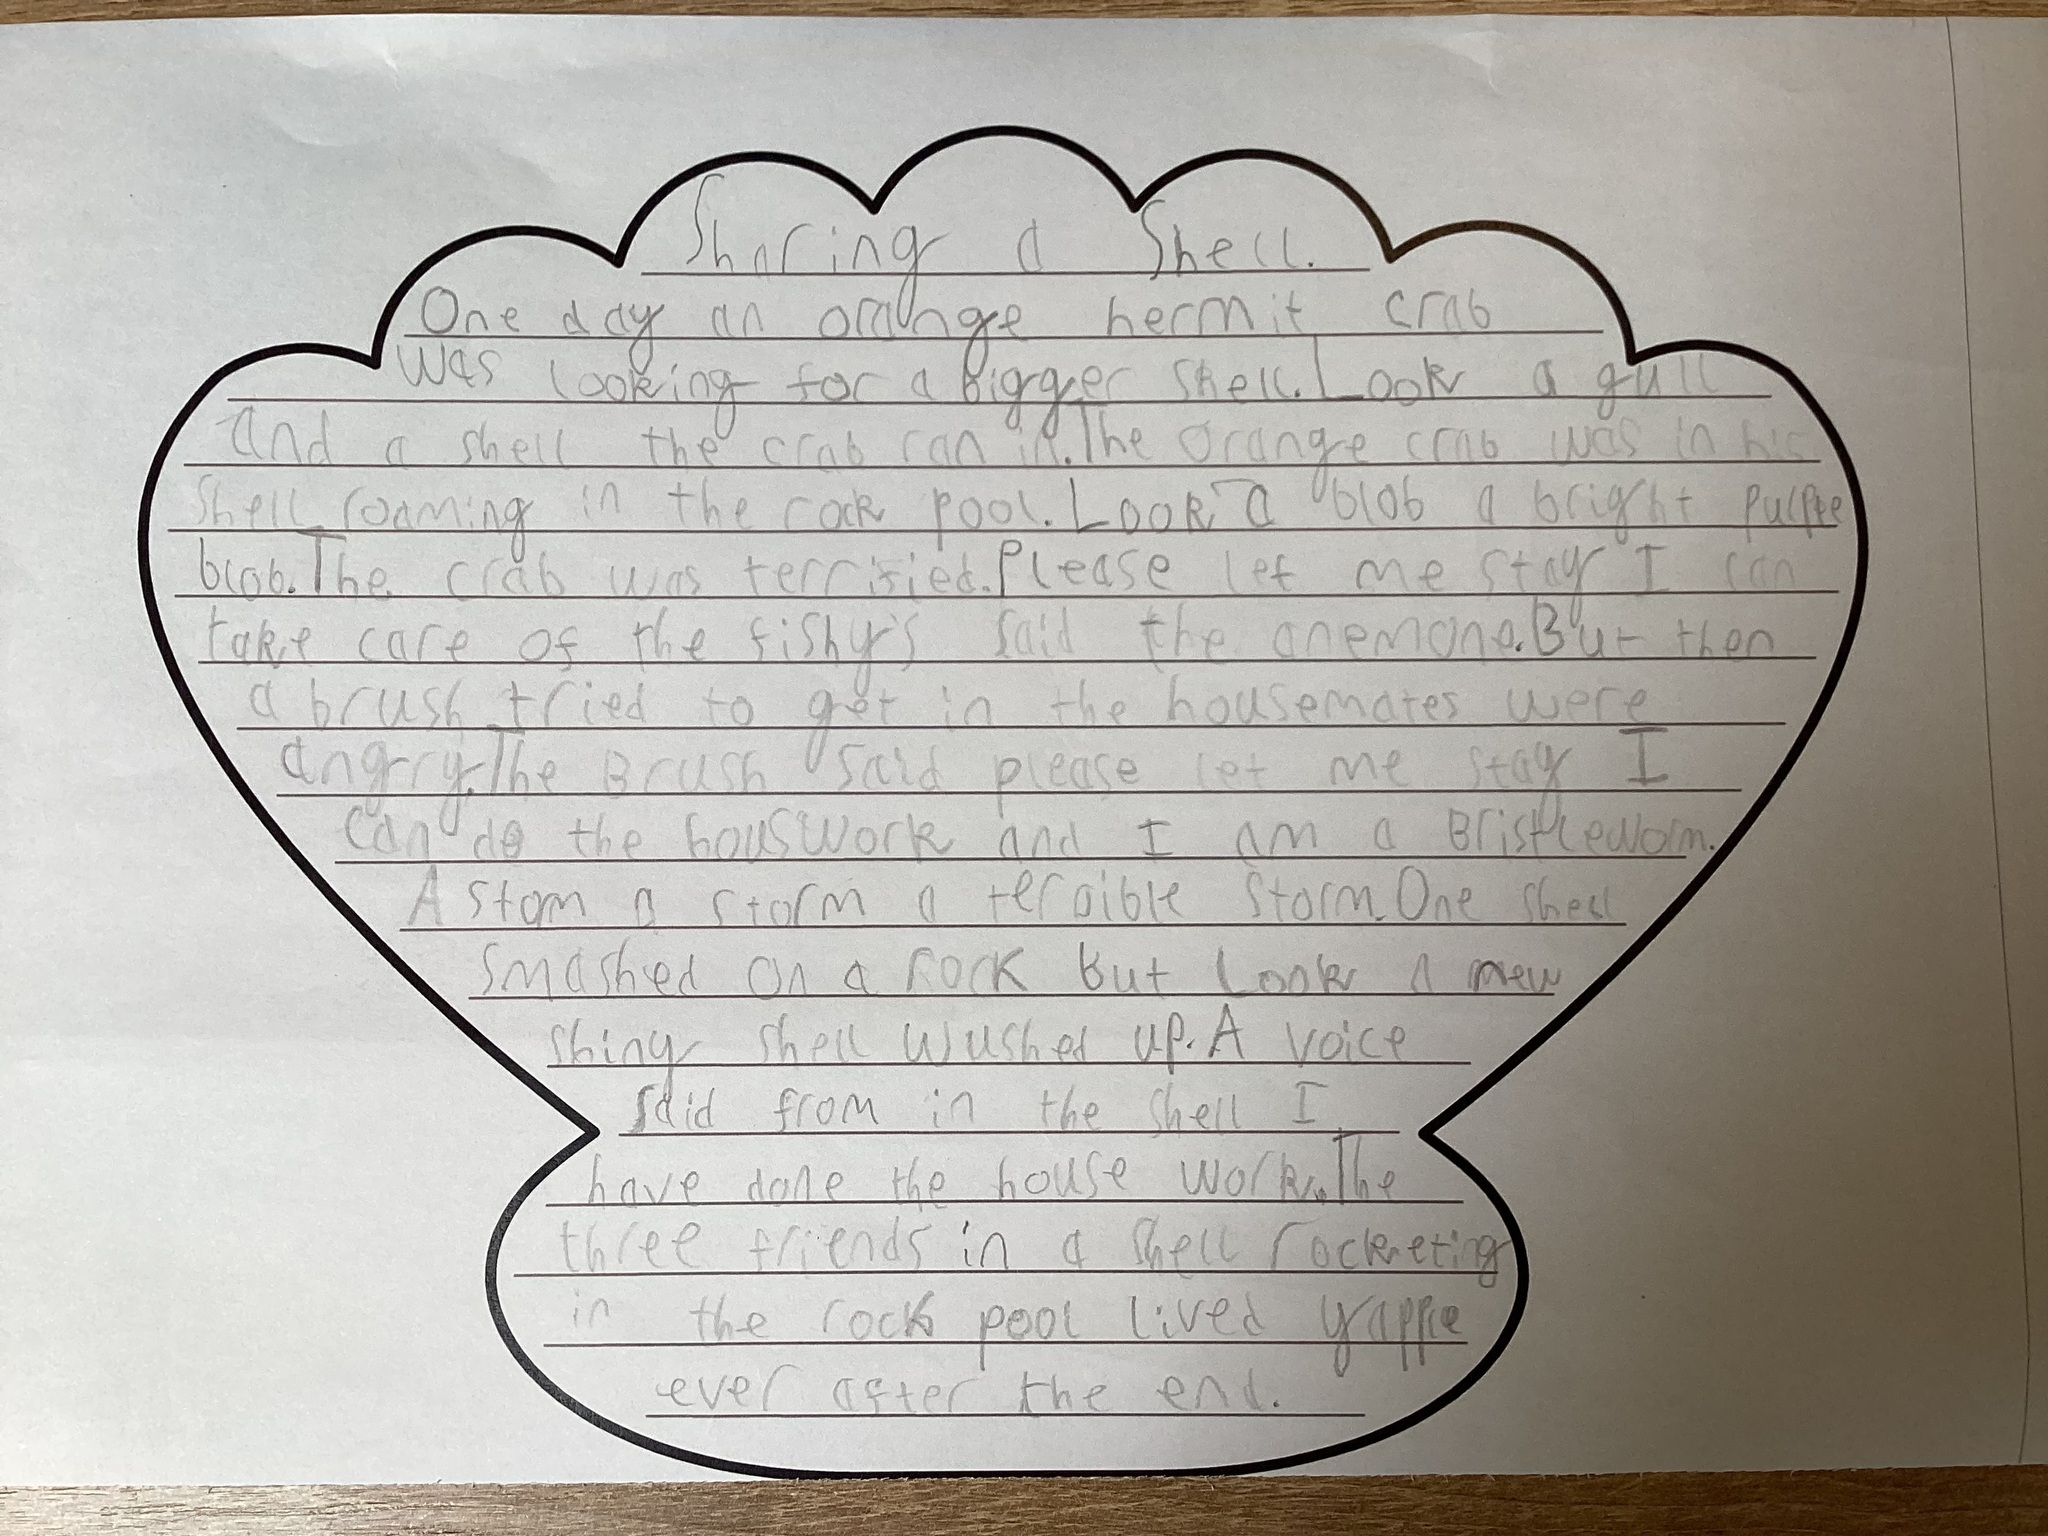 Sharing a Shell.
One day an orange hermit crab
was looking for a bigger shell. Look a gull
and a shell the crab ran in. The orange crab was in his
shell roaming in the rock pool. Look a blob a bright pulple
blob. The crab was terrified. Please let me stay I can
take care of the fishy's said the anemone. But then
a brush tried to get in the housemates were
angry. The Brush said please let me stay I
can do the houswork and I am a Bristleworm.
A stom a storm a terrible storm. One shell
smashed on a rock but look a new
shiny shell wushed up. A voice
said from in the shell I
have done the house work. The
three friends in a shell rocketing
in the rock pool lived yappie
ever after the end.